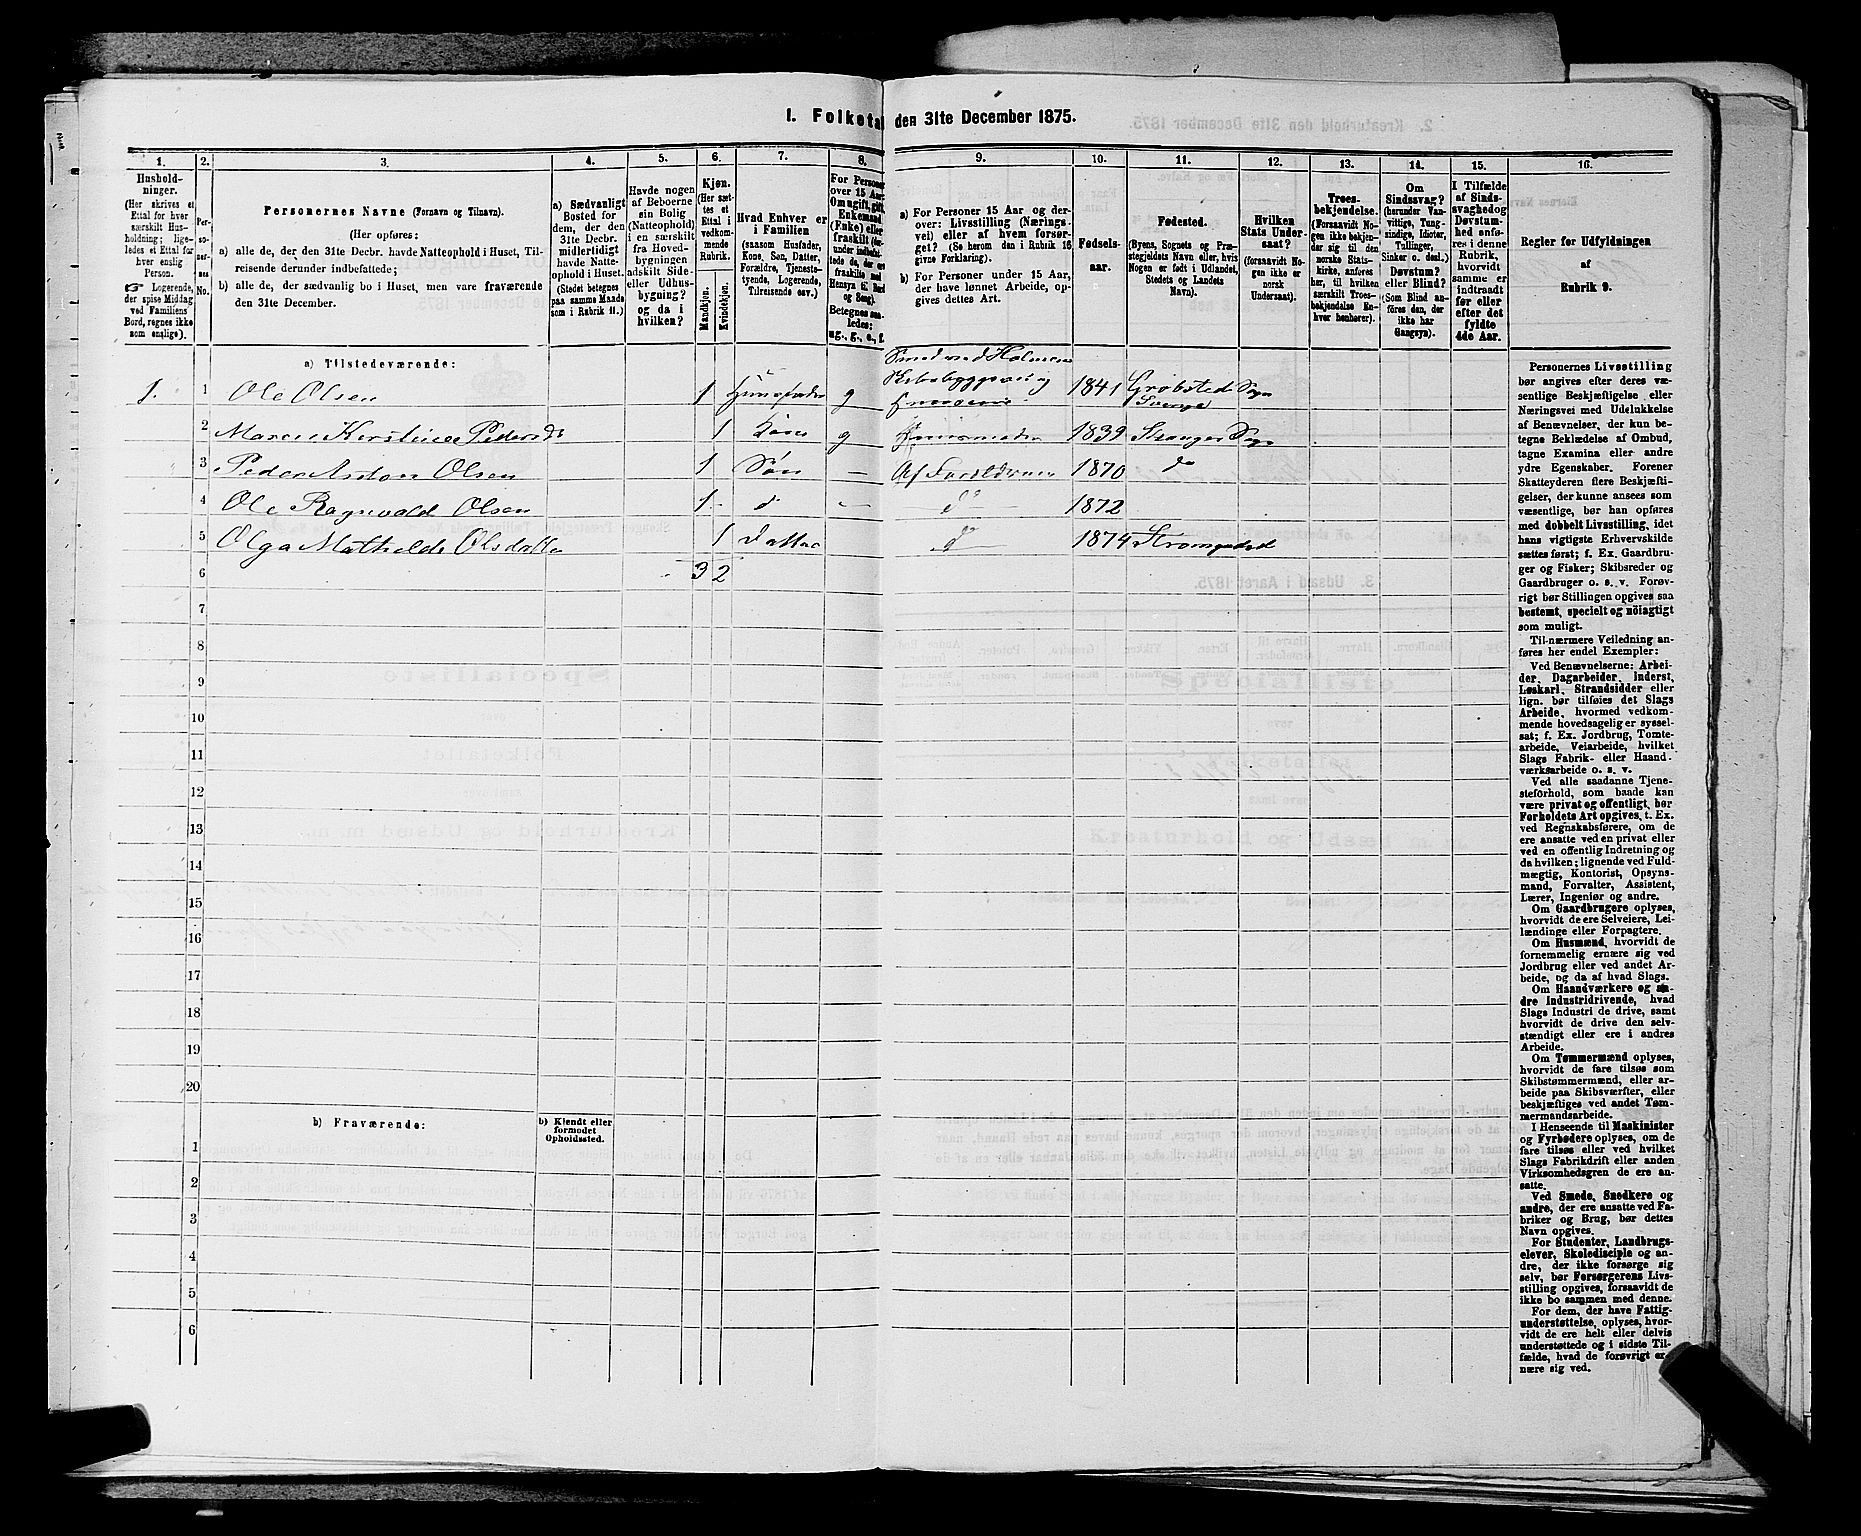 1. Folketal den 31te December 1875.
1. 2. 3. 4. 5. 6. 7. 8. 9. 10. 11. 12. 13. 14. 15. 16.
Hushold-
ninger.
(Her skrives et
Ettal for hver
særskilt Hus-
holdning; lige-
ledes et Ettal for
hver enslig
Person.
☞ Logerende,
der spise Middag
ved Familiens
Bord, regnes ikke
som enslige).
Per-
so-
ner-
nes
No.
Personernes Navne (Fornavn og Tilnavn).
(Her opføres:
a) alle de, der den 31te Decbr. havde Natteophold i Huset, Til-
reisende derunder indbefattede;
b) alle de, der sædvanlig bo i Huset, men vare fraværende
den 31te December.
a) Sædvanligt
Bosted for
dem, der den
31te Decbr.
midlertidigt
havde Natte-
ophold i Huset.
(Stedet betegnes
paa samme Maade
som i Rubrik 11.)
Havde nogen
af Beboerne
sin Bolig
(Natteophold)
i en særskilt
fra Hoved-
bygningen
adskilt Side-
eller Udhus-
bygning?
og da i
hvilken?
Kjøn.
(Her sæt-
tes et
Ettal i
vedkom-
mende
Rubrik.
Mandkjøn.
Kvindekjøn.
Hvad Enhver er
i Familien
(saasom Husfader,
Kone, Søn, Datter,
Forældre, Tjeneste-
tyende, Logerende,
Tilreisende osv.)
For Personer
over 15 Aar:
Om ugift, gift,
Enkemand
(Enke) eller
fraskilt
Betegnes saa-
ledes:
ug., g., e., f.
a) For Personer 15 Aar og der-
over: Livsstilling (Nærings-
vei) eller af hvem forsør-
get? (Se herom den i Rubrik 16
givne Forklaring).
b) For Personer under 15 Aar,
der have lønnet Arbeide, op-
gives dettes Art.
Fødsels-
aar.
Fødested.
(Byens, Sognets og Præ-
stegjeldets Navn eller, hvis
Nogen er født i Udlandet,
Stedets og Landets
Navn).
Hvilken
Stats Under-
saat?
(forsaavidt No-
gen ikke er
norsk
Undersaat).
Troes-
bekjendelse.
(Forsaavidt No-
gen ikke bekjen-
der sig til den
norske Stats-
kirke, anføres
her, til hvilken
særskilt Troes-
bekjendelse En-
hver henhører).
Om
Sindssvag?
(herunder Van-
vittige, Tung-
sindige, Idioter,
Tullinger,
Sinker o. desl.)
Døvstum?
eller Blind?
(Som Blind an-
føres den, der
ikke har
Gangsyn).
I Tilfælde
af Sinds-
svaghed og
Døvstum-
hed anfø-
res i denne
Rubrik,
hvorvidt
samme er
indtraadt
før eller
efter det
fyldte
4de Aar.
Regler for Udfyldningen
af
Rubrik 9.
a) Tilstedeværende:
Smed ved Holmens
Skibsbyggeri og
1. 1 Ole Olsen 1 Huusfader g 1841 Sogn
Sverge
2 Maren Kerstine 1 Kone g Huusmoder 1839 Sogn
3 Peder Anton Olsen 1 Søn — Af Forældrene 1870 do
4 Ole Ragnvald Olsen 1 d — do 1872
5 Olga Mathilde Olsdatter 1 Datter do 1874
6 3 2
7
8
9
10
11
12
13
14
15
16
17
18
19
20
b) Fraværende:
b) Kjendt eller
formodet
Opholdssted.
1
2
3
4
5
6
Personernes Livsstilling
bør angives efter deres væ-
sentlige Beskjæftigelse eller
Næringsvei med Udelukkelse
af Benævnelser, der kun be-
tegne Beklædelse af Ombud,
tagne Examina eller andre
ydre Egenskaber. Forener
Skatteyderen flere Beskjæfti-
gelser, der kunne ansees som
væsentlige, bør han opføres
med dobbelt Livsstilling, idet
hans vigtigste Erhvervskilde
sættes først; f. Ex. Gaardbru-
ger og Fisker; Skibsreder og
Gaardbruger o. s. v. Forøv-
rigt bør Stillingen opgives saa
bestemt, specielt og nöiagtigt
som muligt.
Til nærmere Veiledning an-
føres her endel Exempler:
Ved Benævnelserne: Arbei-
der, Dagarbeider, Inderst,
Løskarl, Strandsidder eller
lign. bør tilføies det Slags
Arbeide, hvormed vedkom-
mende hovedsagelig er syssel-
sat; f. Ex. Jordbrug, Tomte-
arbeide, Veiarbeide, hvilket
Slags Fabrik- eller Haand-
værksarbeide o. s. v.
Ved alle saadanne Tjene-
steforhold, som baade kan
være privat og offentligt, bør
Forholdets Art opgives, t. Ex.
ved Regnskabsførere, om de
ere ansatte ved en privat eller
ved en offentlig Indretning og
da hvilken; lignende ved Fuld-
mægtig, Kontorist, Opsyns-
mand, Forvalter, Assistent,
Lærer, Ingeniør og andre.
Om Gaardbrugere oplyses,
hvorvidt de ere Selveiere, Lei-
lændinge eller Forpagtere.
Om Husmænd, hvorvidt de
fornemmelig ernære sig ved
Jordbrug eller ved andet Ar-
beide, og da af hvad Slags.
Om Haandværkere og an-
dre Industridrivende, hvad
Slags Industri de drive, samt
hvorvidt de drive den selv-
stændigt eller ere i andres
Arbeide.
Om Tømmermænd oplyses,
hvorvidt de fare tilsøs som
Skibstømmermænd, eller ar-
beide paa Skibsværfter, eller
beskjæftiges ved andet Tøm-
mermandsarbeide.
I Henseende til Maskinister
og Fyrbødere oplyses, om de
fare tilsøs eller ved hvilket
Slags Fabrikdrift eller anden
Virksomhedsgren de ere an-
satte.
Ved Smede, Snedkere og
andre, der ere ansatte ved Fa-
briker og Brug, bør dettes
Navn opgives.
For Studenter, Landbrugs-
elever, Skoledisciple og an-
dre, der ikke forsørge sig
selv, bør Forsørgerens Livs-
stilling opgives, forsaavidt de
ikke bo sammen med denne.
For dem, der have Fattig-
understøttelse, oplyses, hvor-
vidt de ere helt eller delvis
understøttede og i sidste Til-
fælde, hvad de forøvrigt er-
nære sig ved.